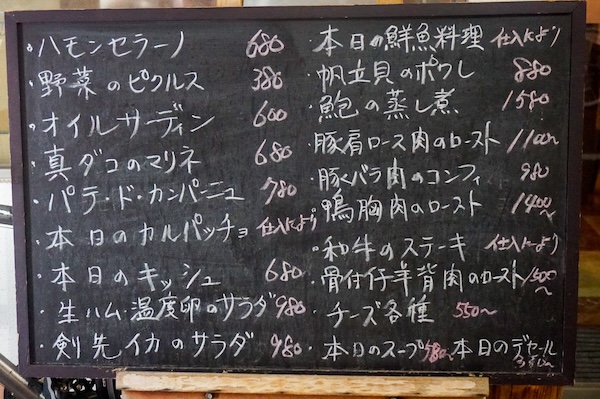 ・ハモンセラーノ 680
・野菜のピクルス 380
・オイルサーディン 600
・真ダコのマリネ 680
・パテ・ド・カンパーニュ 780
・本日のカルパッチョ 仕入により
・本日のキッシュ 680
・生ハム・温度卵のサラダ 980
・剣先イカのサラダ 980
・本日の鮮魚料理 仕入により
・帆立貝のポワレ 880
・鮑の蒸し煮 1580
・豚肩ロース肉のロースト 1100
・豚バラ肉のコンフィ 980
・鴨胸肉のロースト 1400〜
・和牛のステーキ 仕入により
・骨付仔羊背肉のロースト 1500〜
・チーズ各種 550〜
・本日のスープ 480〜 本日のデセール